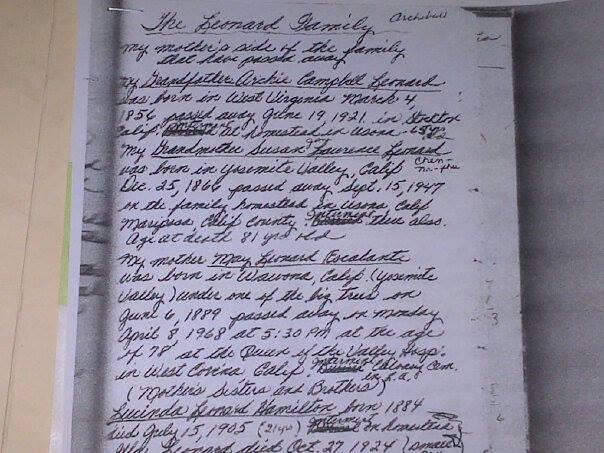 The Leonard Family Archibald
My mother's side of the family
that have passed away
My Grandfather Archie Campbell Leonard
was born in West Virginia March 4
1856 passed away June 19, 1921 in Stockton
Calif. at homestead in Usona - 65 yrs
My Grandmother Susan Lawrence Leonard
was born in Yosemite Valley, Calif Chen-
Dec. 25, 1866 passed away Sept. 15, 1947
on the family homestead in Usona Calif
Mariposa Calif County. Interment there also.
Age at death 81 yrs old
My mother May Leonard Escalante
was born in Wawona, Calif. (Yosemite
Valley) under one of the big trees on
June 6, 1889 passed away on Monday
April 8 1968 at 5:30 PM at the age
of 78 at the Queen of the Valley Hosp.
in West Covina Calif Interment Calvary Cem.
in L.A.
(Mother's Sisters and Brothers)
Lucinda Leonard Hamilton born 1884
died July 15, 1905 (21 yrs) Interment on homestead
Leonard died Oct. 27 1924 (